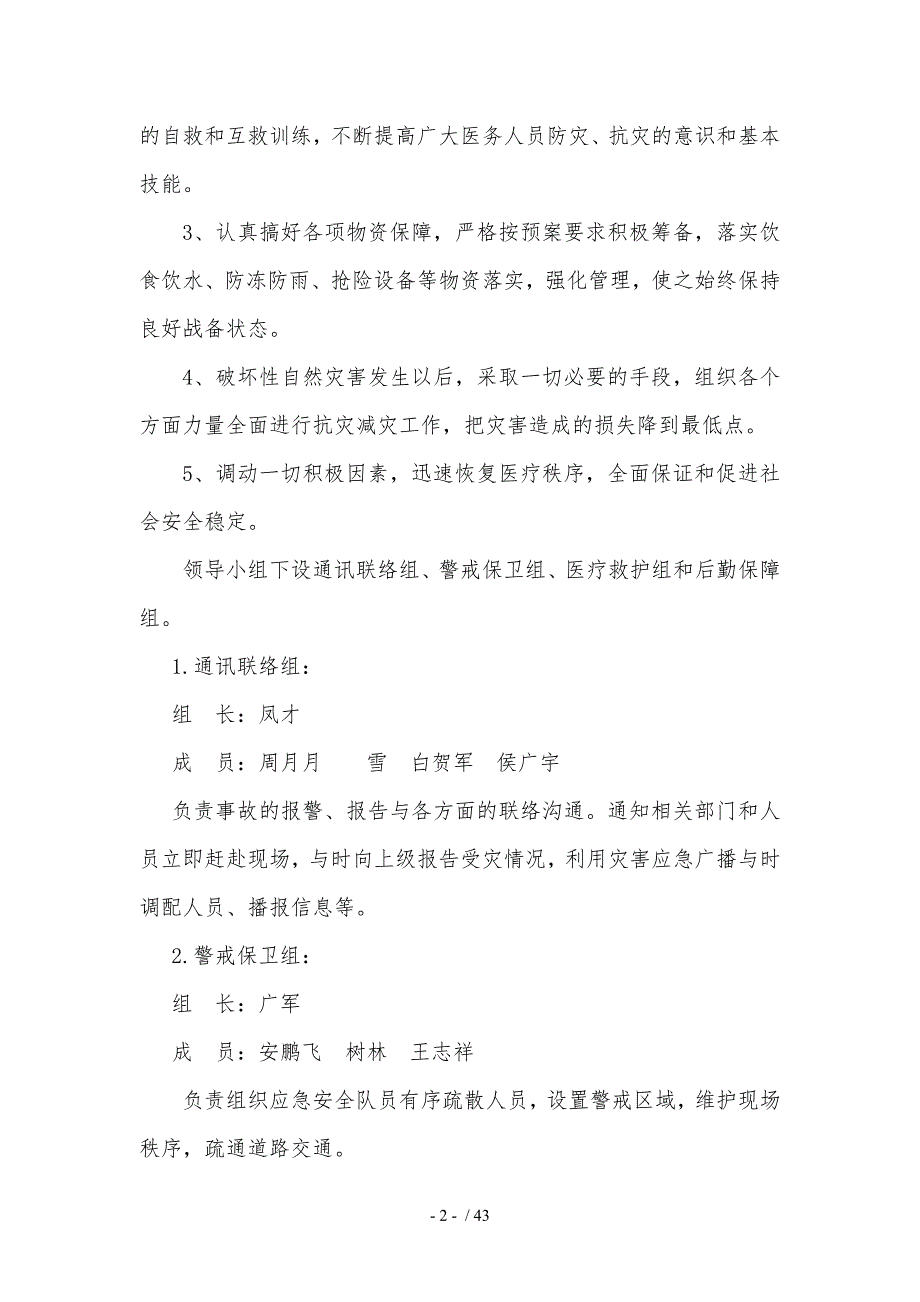 的自救和互救训练，不断提高广大医务人员防灾、抗灾的意识和基本
技能。
3、认真搞好各项物资保障，严格按预案要求积极筹备，落实饮
食饮水、防冻防雨、抢险设备等物资落实，强化管理，使之始终保持
良好战备状态。
4、破坏性自然灾害发生以后，采取一切必要的手段，组织各个
方面力量全面进行抗灾减灾工作，把灾害造成的损失降到最低点。
5、调动一切积极因素，迅速恢复医疗秩序，全面保证和促进社
会安全稳定。
领导小组下设通讯联络组、警戒保卫组、医疗救护组和后勤保障
组。
1.通讯联络组：
组　长：凤才
成　员：周月月　　雪　白贺军　侯广宇
负责事故的报警、报告与各方面的联络沟通。通知相关部门和人
员立即赶赴现场，与时向上级报告受灾情况，利用灾害应急广播与时
调配人员、播报信息等。
2.警戒保卫组：
组　长：广军
成　员：安鹏飞　树林　王志祥
负责组织应急安全队员有序疏散人员，设置警戒区域，维护现场
秩序，疏通道路交通。
- 2 - / 43